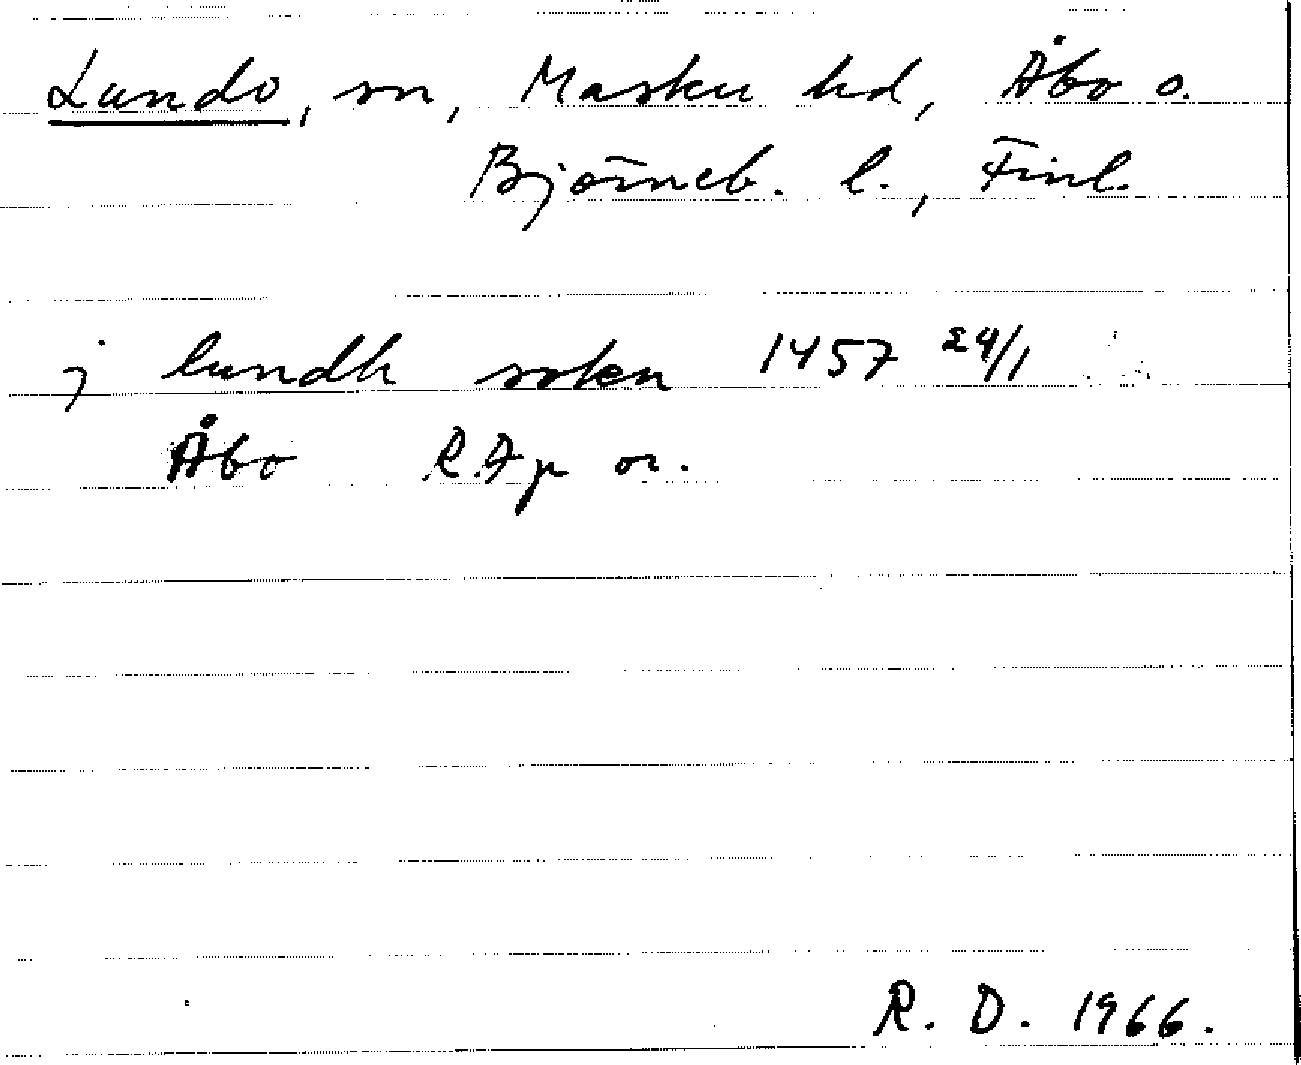 Lundo, sn, Masku hd, Åbo o.
Björneb. l., Finl.
j lundh sokn 1457 24/1
Åbo RAp or.
R. D. 1966.